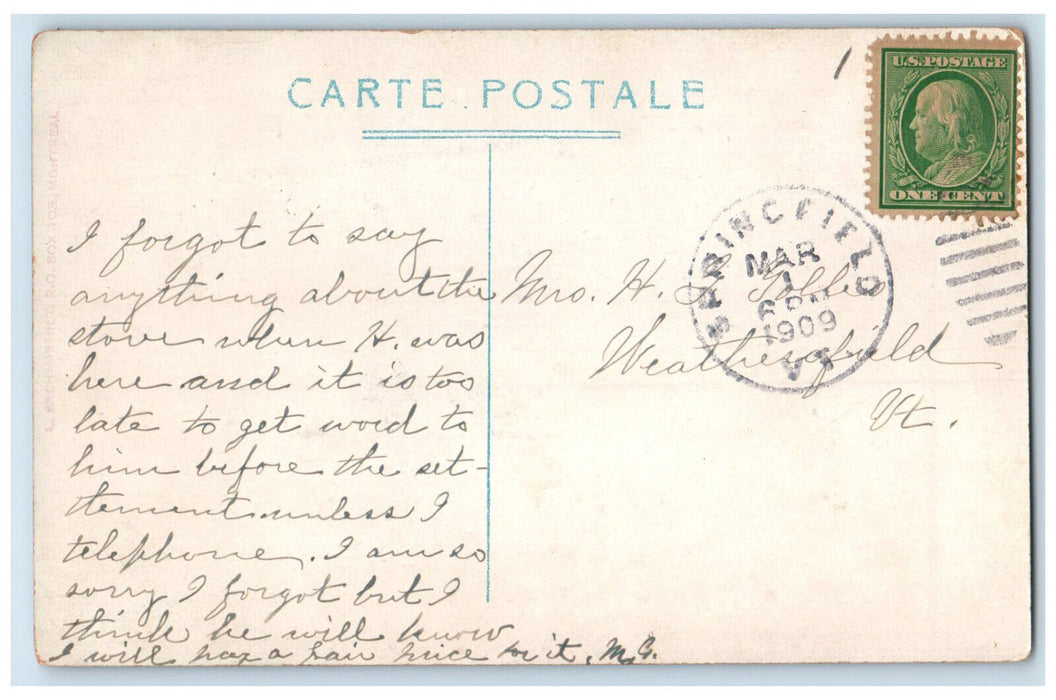 CARTE POSTALE
U.S. POSTAGE
ONE CENT
SPRINGFIELD
MAR
1
6 PM
1909
VT
I forgot to say
anything about the
stove when H. was
here and it is too
late to get word to
him before the set-
tlement unless I
telephone. I am so
sorry I forgot but I
think he will know
I will pay a fair price for it. M.G.
Mrs. H.
Weathersfield
Vt.
P.O. BOX MONTREAL